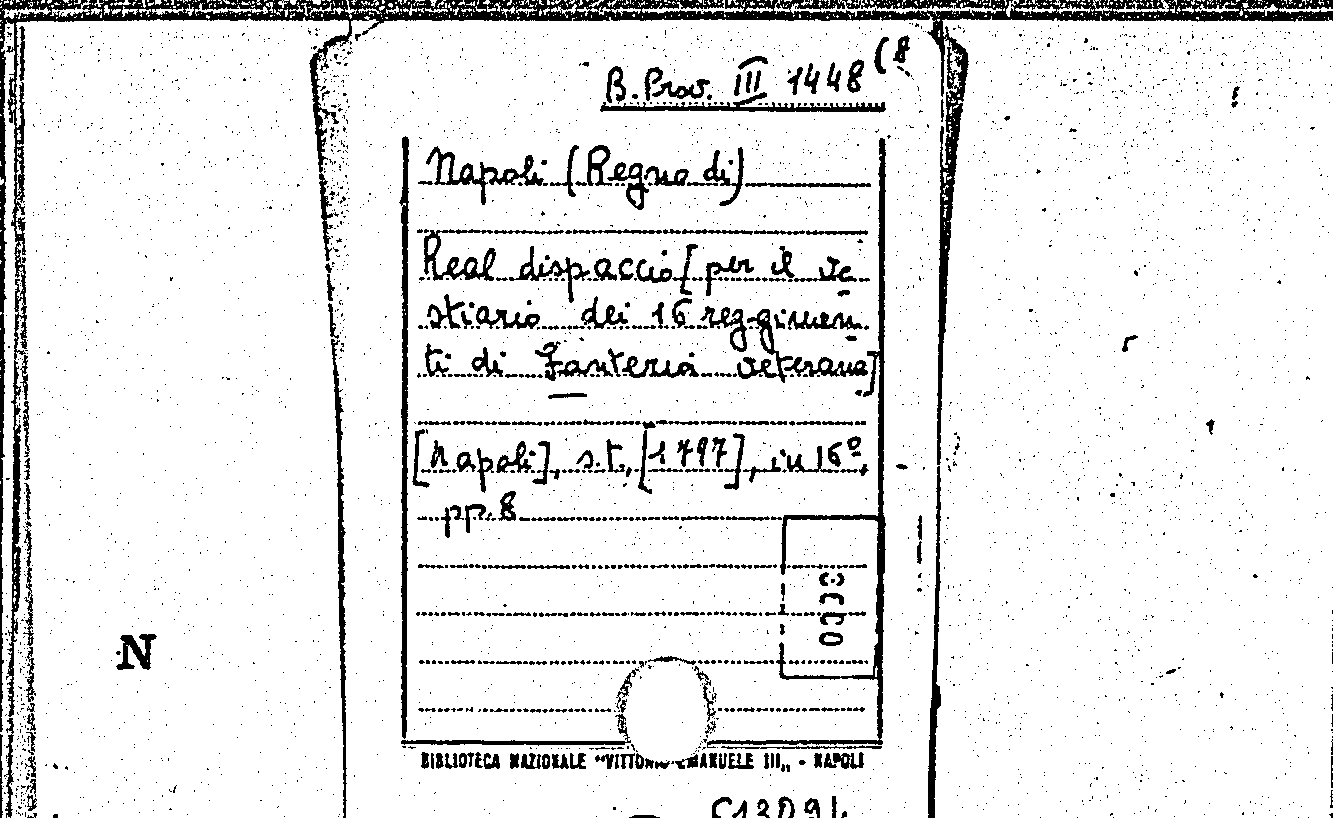 B. Prov. III 1448 (8
Napoli (Regno di)
Real dispaccio [per il ve
stiario dei 16 reggimen
ti di Fanteria veterana]
[Napoli], s.t., [1797], in 16º,
pp. 8
N
BIBLIOTECA NAZIONALE "VITTORIO EMANUELE III„ - NAPOLI